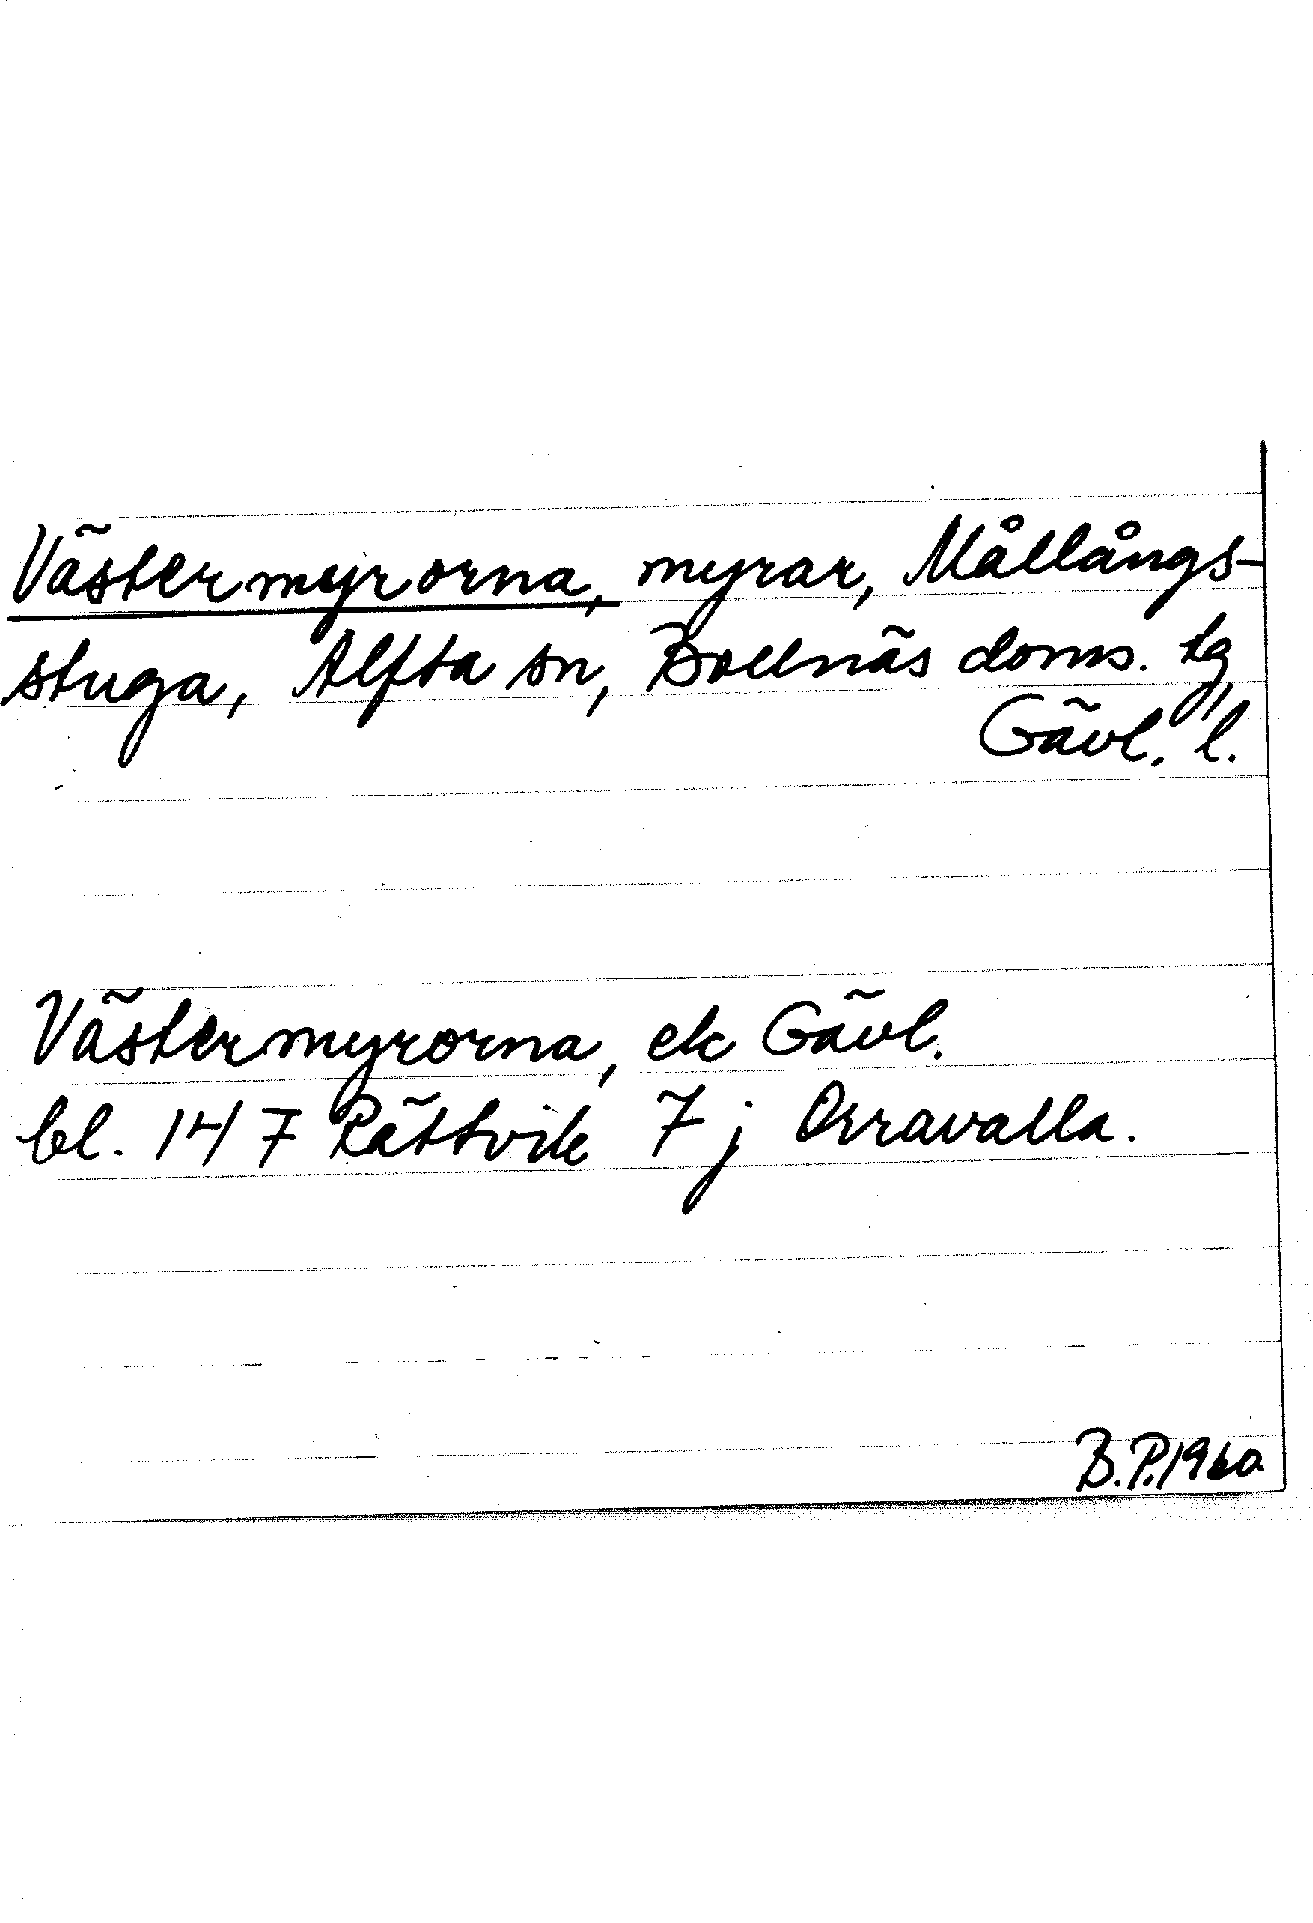 Västermyrorna, myrar, Mållångs-
stuga, Alfta sn, Bollnäs doms. tg,
Gävl. l.
Västermyrorna, ek Gävl.
bl. 147 Rättvik 7 j Orravalla.
B.P. 1960